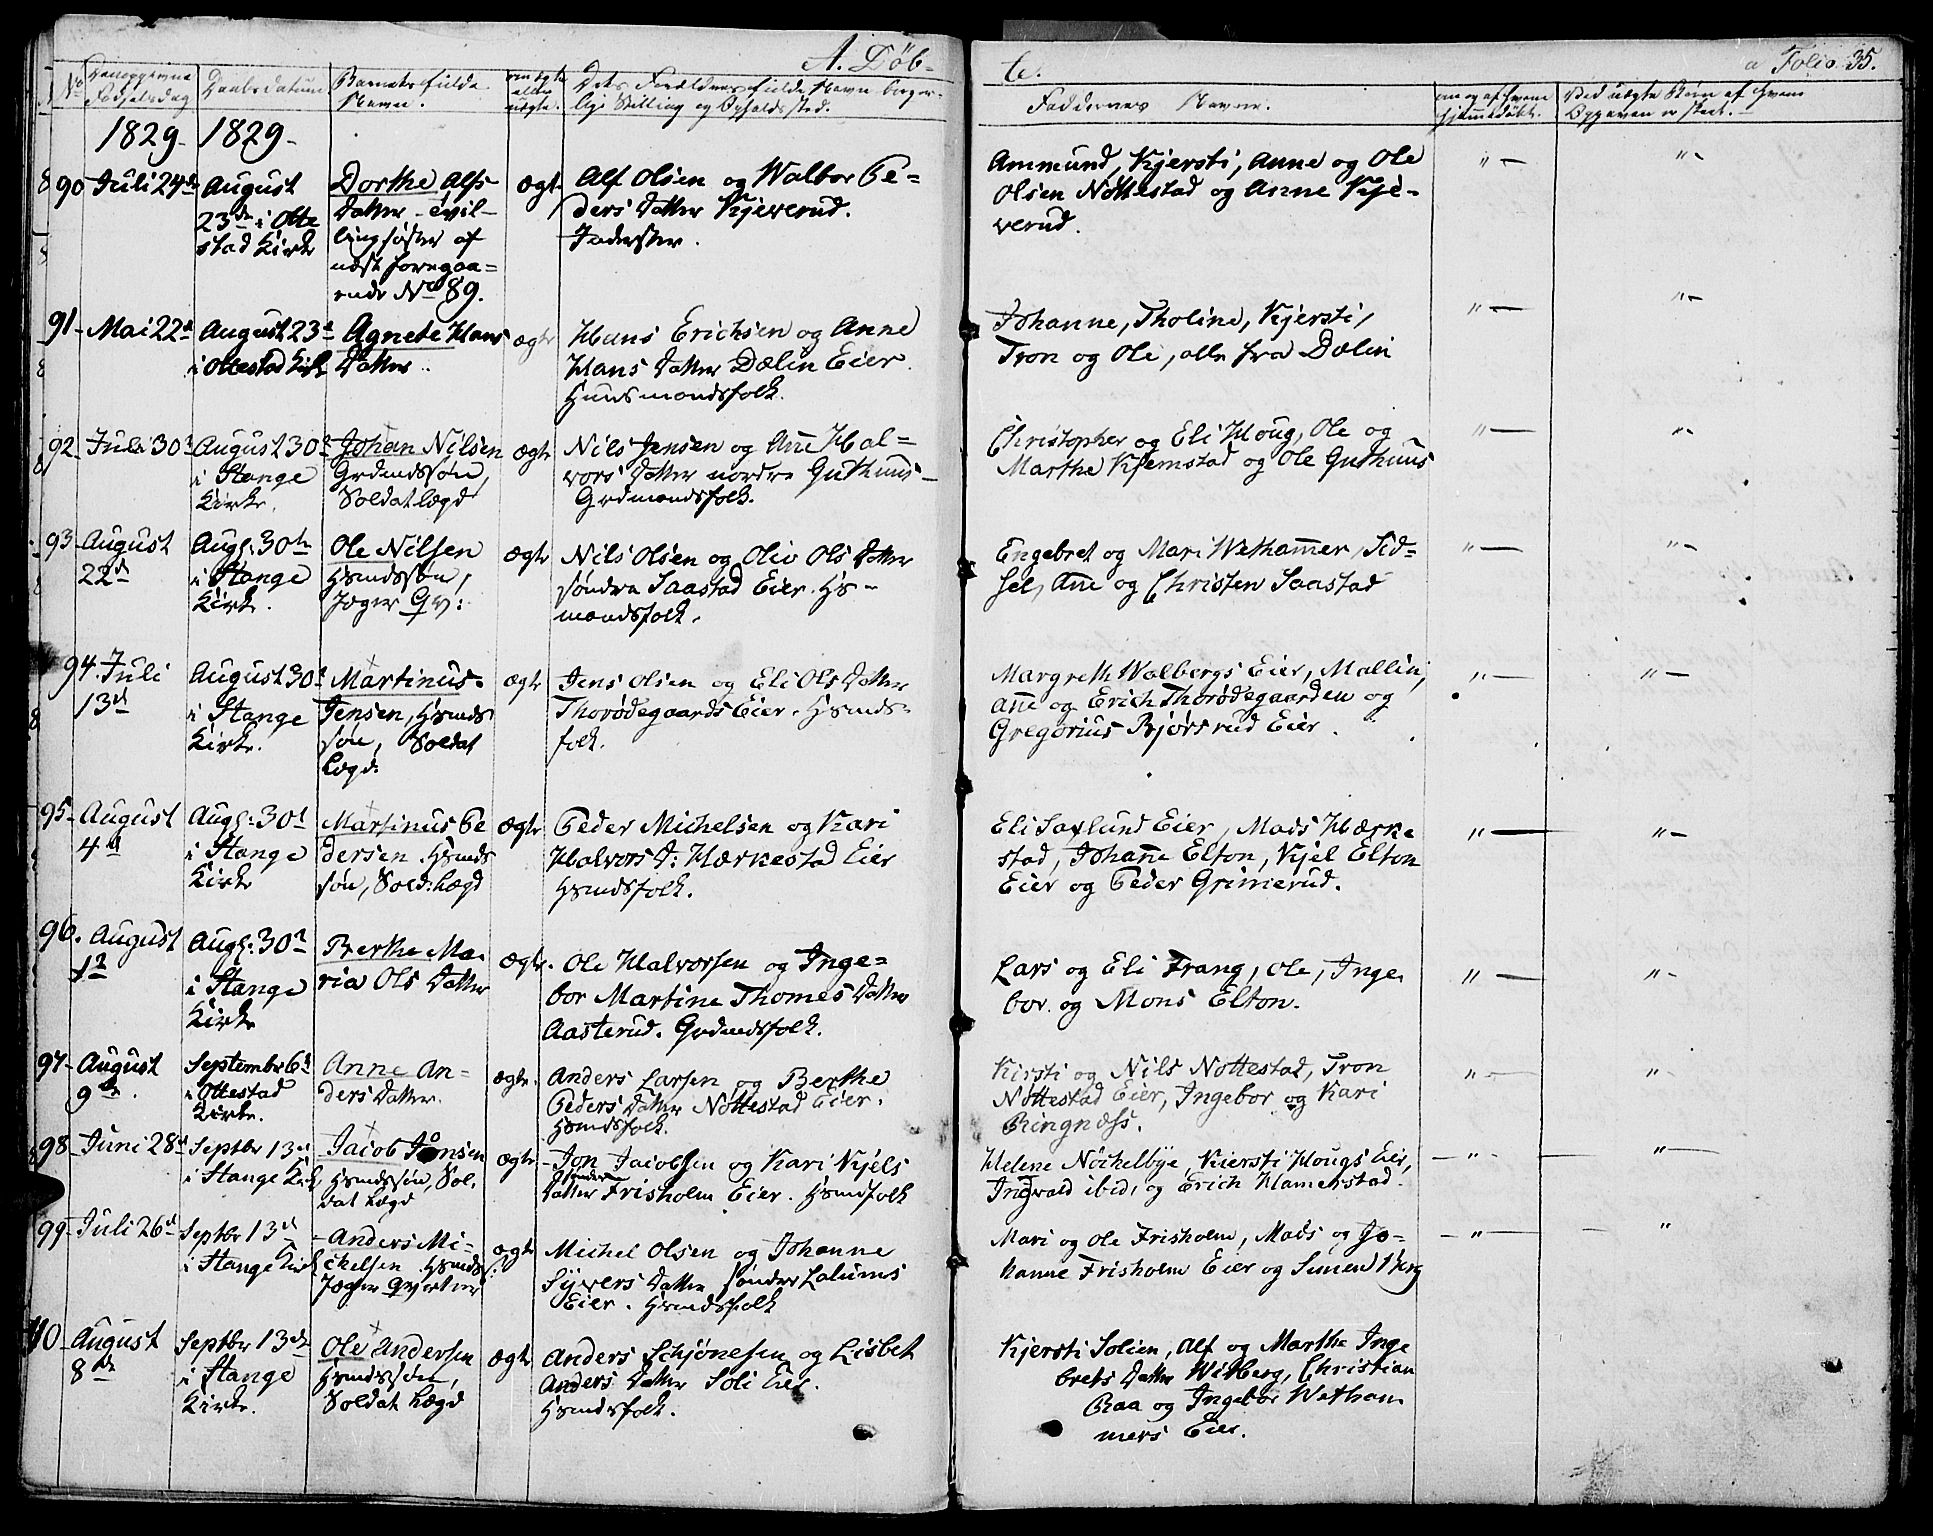 A. Døb-
te.
a Folio 35.
No
Daabsdatum
Barnets fulde
Navn.
om ægte
eller
uægte.
Dets Forældres fulde Navn borger-
lige Stilling og Opholdssted.
Faddernes Navne.
om og af hvem
hjemmedøbt.
Ved uægte Børn af hvem
Opgaven er skeet.
1829- 1829-
90 Juli 24de August
23de i Otte
stad Kirke
Dorthe Alfs
Datter - Tvil-
lingsøster af
næst foregaa-
ende No 89.
ægte
Alf Olsen og Walbor Pe-
ders Datter Kjeverud.
Inderster.
Ammund, Kjersti, Anne og Ole
Olsen Nøttestad og Anne Kje-
verud.
91- Mai 22d August 23d
i Ottestad Kirke
Agnete Hans
Datter.
ægte
Hans Erichsen og Anne
Hans Datter Dælin Eier.
Huusmandsfolk.
Johanne, Tholine, Kjersti,
Tron og Ole, alle fra Dælin
92- Juli 30d August 30d
i Stange
Kirke.
Johan Nilsen
Grdmdssøn,
Soldatlægd
ægte
Nils Jensen og Ane Hal-
vors Datter nordre Guthuus-
Grdmandsfolk.
Christopher og Eli Houg, Ole og
Marthe Kjemstad og Ole Guthuus
93- August
22d
Augs: 30te
i Stange
Kirke.
Ole Nilsen
Hsmdssøn,
Jæger Qv:
ægte
Nils Olsen og Oliv Ols Datter
søndre Saastad Eier. Hs-
mandsfolk.
Engebret og Mari Wethammer, Sid-
sel, Ane og Christen Saastad
94. Juli
13d
August 30d
i Stange
Kirke.
Martinus
Jensen, Hsmds
søn, Soldat
Lægd:
ægte
Jens Olsen og Eli Ols Datter
Thorødegaards Eier. Hsmds-
folk.
Margreth Walbergs Eier, Mallin,
Ane og Erich Thorødegaarden og
Gregorius Bjørsrud Eier.
95- August
4d
Augs: 30d
i Stange
Kirke
Martinus Pe
dersen. Hsmds
søn, Sold: Lægd
ægte
Peder Michelsen og Kari
Halvors D: Hærkestad Eier
Hsmdsfolk.
Eli Saxlund Eier, Mads Hærke
stad, Johane Elton, Kjel Elton
Eier og Peder Grimerud.
96. August
1d
Augs: 30d
i Stange
Kirke
Berthe Ma-
ria Ols Datter
ægte.
Ole Halvorsen og Inge-
bor Martine Thomes Datter
Aasterud. Grdmdsfolk.
Lars og Eli Frang, Ole, Inge
bor. og Mons Elton.
97- August
9de.
Septembr 6d
i Ottestad
Kirke.
Anne An-
ders Datter.
ægte.
Anders Larsen og Berthe
Peders Datter Nøttestad Eier.
Hsmdsfolk.
Kirsti og Nils Nøttestad, Tron
Nøttestad Eier, Ingebor og Kari
Ringnæss.
98- Juni 28d Septbr 13d
i Stange Kirk
Jacob Jonsen
Hsmdssøn, Sol-
dat Lægd
ægte
Jon Jacobsen og Kari Kjels
Datter Frisholm Eier. Hsmdfolk
Helene Nøchelbye, Kiersti Hougs Eier,
Ingwald ibid, og Erich Hamerstad.
99- Juli 26d Septbr 13d
i Stange Kirk
Anders Mi-
chelsen. Hsmdss:
Jæger Qvarteer
ægte
Michel Olsen og Johanne
Syvers Datter søndre Lalums
Eier. Hsmdsfolk
Mari og Ole Frisholm, Mads og Jo-
hanne Frisholm Eier og Simen
August
8de
Septbr 13de
i Stange
Kirke.
Ole Andersen
Hsmdssøn,
Soldat Lægd
ægte
Anders Schjønesen og Lisbet
Anders Datter Soli Eier.
Hsmdsfolk.
Kjersti Solien, Alf og Marthe Inge
brets Datter Witberg, Christian
Raa og Ingebor Wetham
mers Eier.